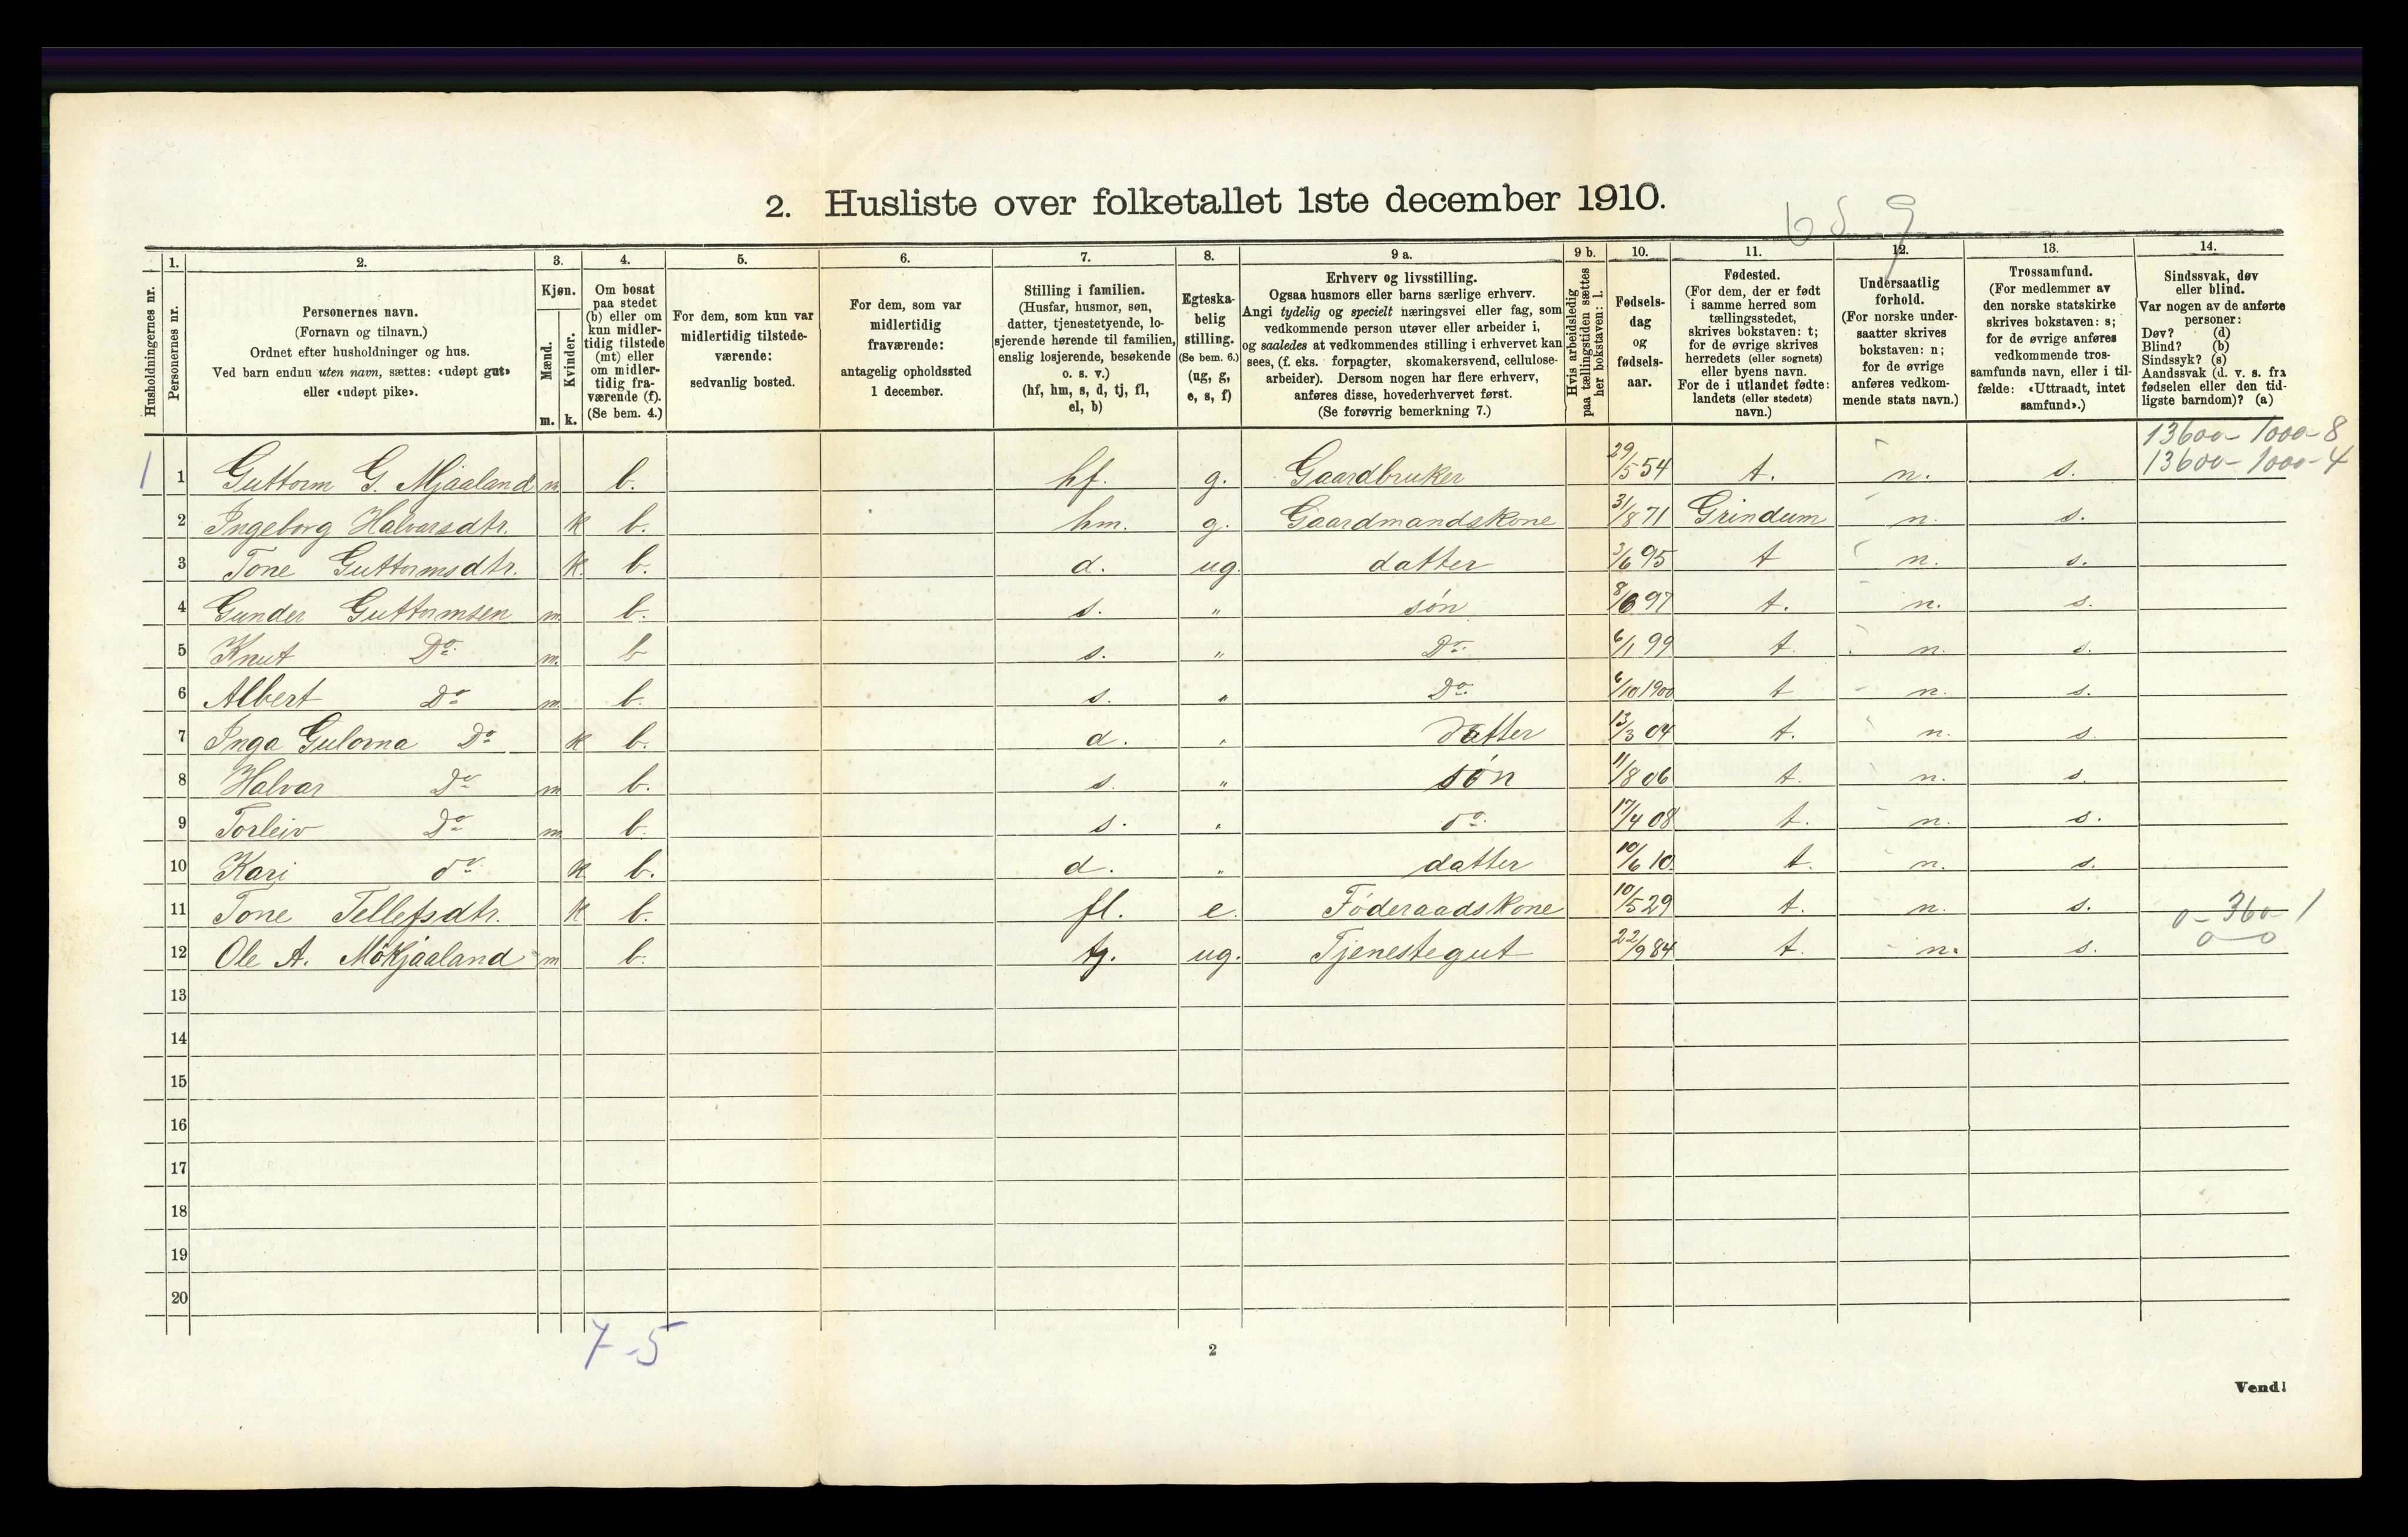 2. Husliste over folketallet 1ste december 1910.
6 9
1. 2. 3. 4. 5. 6. 7. 8. 9 a. 9 b. 10. 11. 12. 13. 14.
Husholdningernes nr.
Personernes nr.
Personernes navn.
(Fornavn og tilnavn.)
Ordnet efter husholdninger og hus.
Ved barn endnu uten navn, sættes: «udøpt gut»
eller «udøpt pike».
Kjøn.
Mænd.
Kvinder.
m. k.
Om bosat
paa stedet
(b) eller om
kun midler-
tidig tilstede
(mt) eller
om midler-
tidig fra-
værende (f).
(Se bem. 4.)
For dem, som kun var
midlertidig tilstede-
værende:
sedvanlig bosted.
For dem, som var
midlertidig
fraværende:
antagelig opholdssted
1 december.
Stilling i familien.
(Husfar, husmor, søn,
datter, tjenestetyende, lo-
sjerende hørende til familien,
enslig losjerende, besøkende
o. s. v.)
(hf, hm, s, d, tj, fl,
el, b)
Egteska-
belig
stilling.
(Se bem. 6.)
(ug, g,
e, s, f)
Erhverv og livsstilling.
Ogsaa husmors eller barns særlige erhverv.
Angi tydelig og specielt næringsvei eller fag, som
vedkommende person utøver eller arbeider i,
og saaledes at vedkommendes stilling i erhvervet kan
sees, (f. eks. forpagter, skomakersvend, cellulose-
arbeider). Dersom nogen har flere erhverv,
anføres disse, hovederhvervet først.
(Se forøvrig bemerkning 7.)
Hvis arbeidsledig
paa tællingstiden sættes
her bokstaven: l.
Fødsels-
dag
og
fødsels-
aar.
Fødested.
(For dem, der er født
i samme herred som
tællingsstedet,
skrives bokstaven: t;
for de øvrige skrives
herredets (eller sognets)
eller byens navn.
For de i utlandet fødte:
landets (eller stedets)
navn.)
Undersaatlig
forhold.
(For norske under-
saatter skrives
bokstaven: n;
for de øvrige
anføres vedkom-
mende stats navn.)
Trossamfund.
(For medlemmer av
den norske statskirke
skrives bokstaven: s;
for de øvrige anføres
vedkommende tros-
samfunds navn, eller i til-
fælde: «Uttraadt, intet
samfund».)
Sindssvak, døv
eller blind.
Var nogen av de anførte
personer:
Døv? (d)
Blind? (b)
Sindssyk? (s)
Aandssvak (d. v. s. fra
fødselen eller den tid-
ligste barndom)? (a)
13600 - 1000 - 8
1 1 Guttorm G. Mjaaland m b. hf. g. Gaardbruker 29/5 54 t. n. s. 13600 - 1000 - 4
2 Ingeborg Halvarsdtr. k b. hm. g. Gaardmandskone 31/8 71 Grindum n. s.
3 Tone Guttormsdtr. k. b. d. ug. datter 3/6 95 t n. s.
4 Gunder Guttormsen m. b. s. " søn 8/6 97 t. n. s.
5 Knut Do. m. b s. " Do. 6/1 99 t. n. s.
6 Albert Do m. b. s. " Do. 6/10 1900 t n. s.
7 Inga Gulovna Do k b. d. " datter 13/3 04 t. n. s.
8 Halvar Do m b. s. " søn 11/8 06 t. n. s.
9 Torleiv Do m b. s. " do. 17/4 08 t. n. s.
10 Kari do. k b. d. " datter 10/6 10. t. n. s.
11 Tone Tellefsdtr. k b. fl. e. Føderaadskone 10/5 29 t. n. s. 0 - 360 - 1
12 Ole A. Mökjaaland m b. tj. ug. Tjenestegut 22/9 84 t. n. s. 0 - 0
13
14
15
16
17
18
19
20
7 - 5
2
Vend!